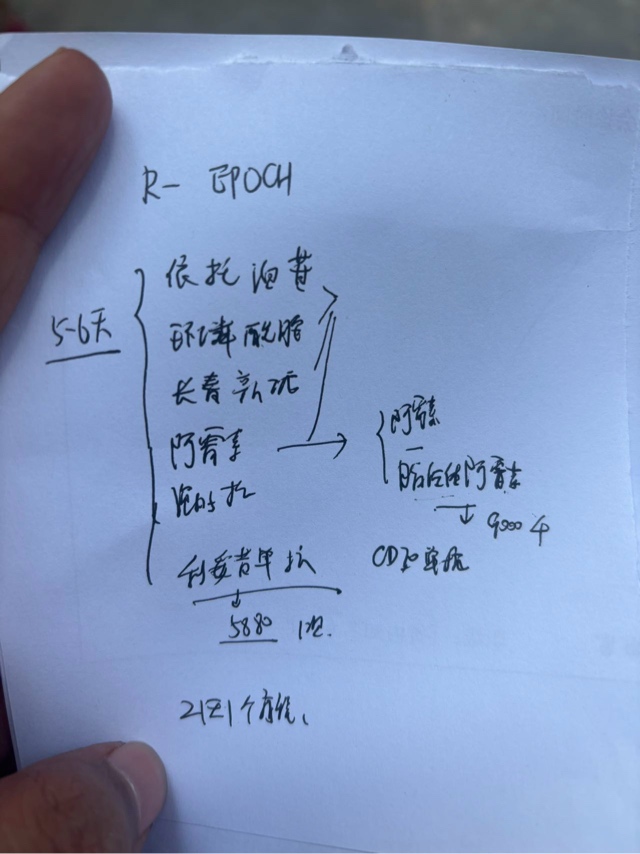 R- EPOCH
5-6天
依托泊苷
环磷酰胺
长春新碱
阿霉素
利妥昔单抗
5880
阿霉素
脂质体阿霉素
9000
CD20单抗
21天1个疗程、